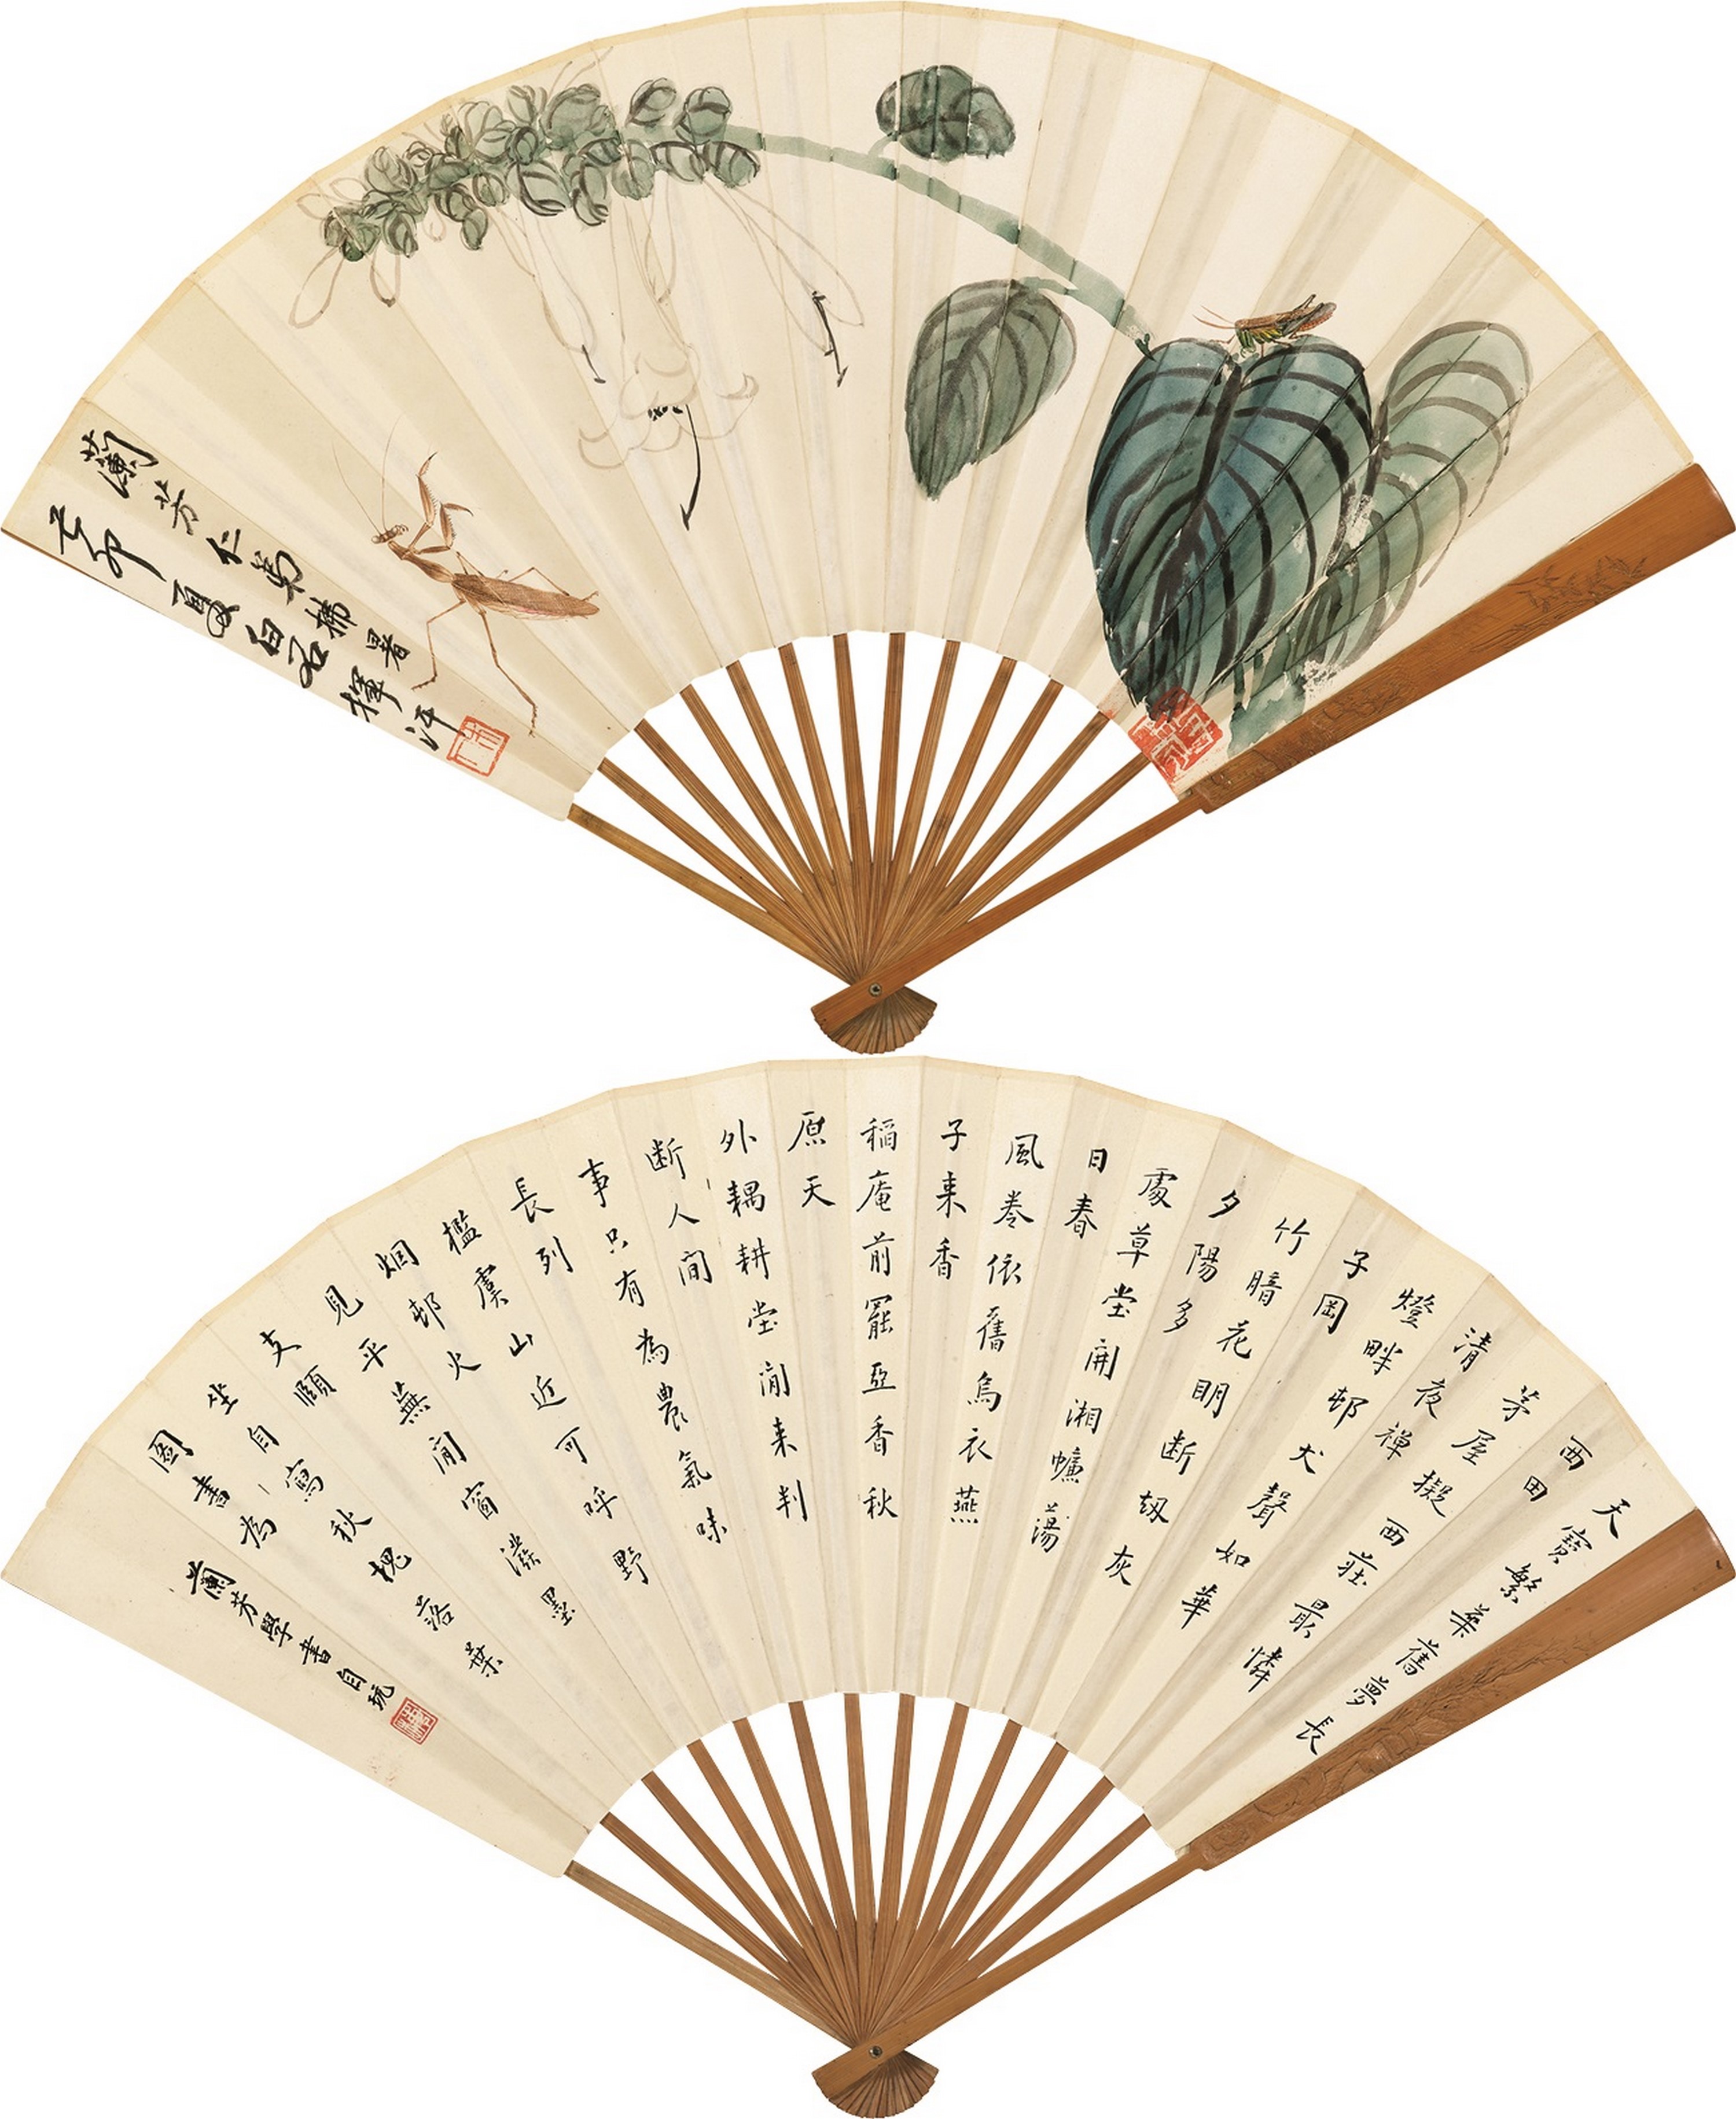 蘭芳仁弟拂暑
己卯夏白石揮汗
天寶繁華舊夢長
西田
茅屋擬西莊最憐
清夜禪
燈畔邨犬聲如華
子岡
竹暗花明断刼灰
夕陽多
處草堂開湘蠊蕩
日春
風卷依舊烏衣燕
子来香
稲庵前罷亞香秋
原天
外耦耕堂閒来判
断人間
事只有為農氣味
長列
檻虞山近可呼野
烟邨火
見平蕪閒窗潑墨
支頤
坐自寫秋槐落葉
圖書為
蘭芳學書自玩